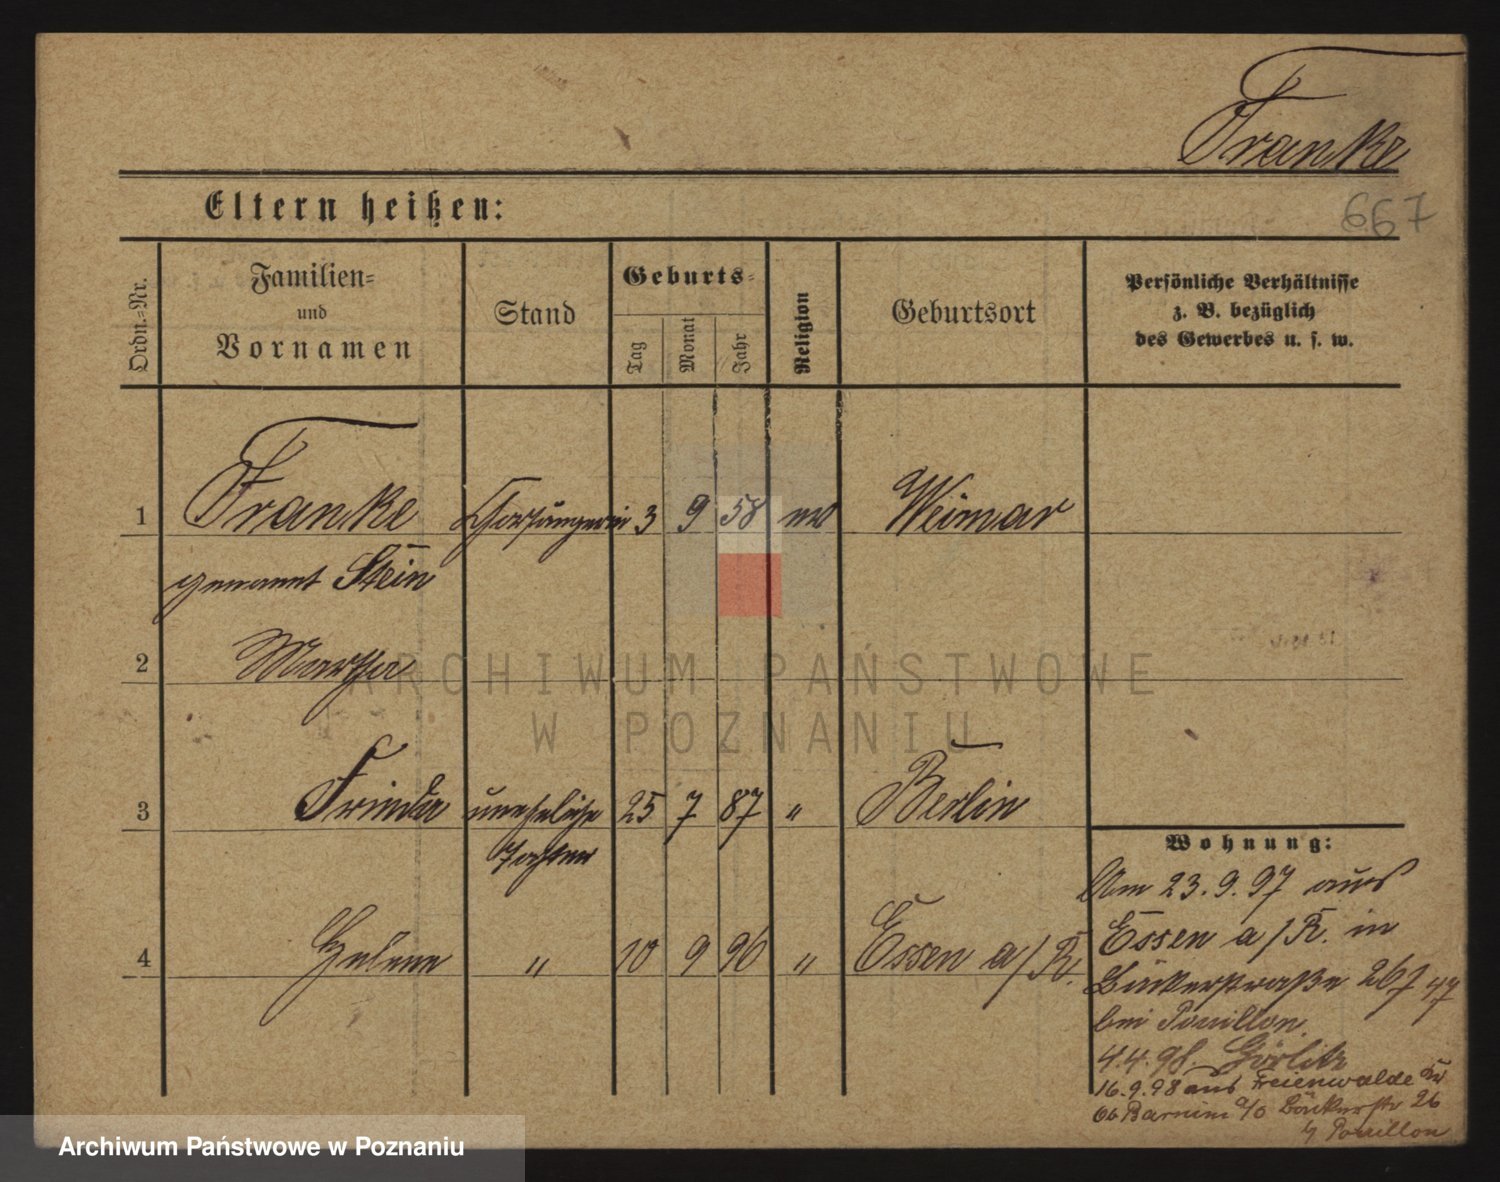 Franke
667
Eltern heißen:
Ordn.-Nr.
Familien- und Vornamen
Stand
Geburts-
Tag
Monat
Jahr
Religion
Geburtsort
Persönliche Verhältnisse
z. B. bezüglich
des Gewerbes u. s. w.
1 Franke Chorsängerin 3 9 58 ev Weimar
genannt Stein
2 Martha
3 Frieda uneheliche 25 7 87 " Berlin
Tochter
4 Helene " 10 9 96 " Essen a/R.
Wohnung:
Am 23.9.97 aus
Essen a/R. in
Bäckerstraße 26
bei Pouillon.
4.4.98. Görlitz
16.9.98 aus Freienwalde
Barnim Bäckerstr 26
Pouillon
ARCHIWUM PAŃSTWOWE
W POZNANIU
Archiwum Państwowe w Poznaniu